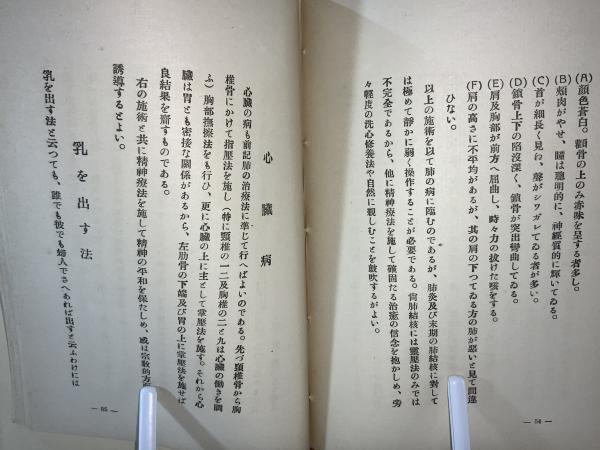 (A)顏色蒼白。顴骨の上のみ赤味を呈する者多し。
(B)頬肉がやせ、瞳は聰明的に、神經質的に輝いてゐる。
(C)首が細長く見わ、聲がシワガレてゐる者が多い。
(D)鎖骨上下の陷沒深く、鎖骨が突出彎曲してゐる。
(E)肩及胸部が前方へ屈曲し、時々力の拔けた咳をする。
(F)肩の高さに不平均があるが、其の肩の下つてゐる方の肺が惡いと見て間違
ひない。
以上の施術を以て肺の病に臨むのであるが、肺炎及末期の肺結核に對して
は極めて靜かに弱く操作することが必要である。尙肺結核には靈壓法のみでは
不完全であるから、他に精神療法を施して確固たる治癒の信念を抱かしめ、旁
々輕度の洗心修養法や自然に親しむことを鼓吹するがよい。
— 54 —
心臟病
心臟の病も前記肺の治療法に準じて行へばよいのである。先づ頸椎骨から胸
椎骨にかけて指壓法を施し(特に頸椎の一二及胸椎の二と九は心臟の働きを調
ふ)胸部撫擦法をも行ひ、更に心臟の上に主として掌壓法を施す。それから心
臟は胃とも密接な關係があるから、左肋骨の下端及び胃の上に掌壓法を施せば
良結果を齎すものである。
右の施術と共に精神療法を施して精神の平和を保たしめ、或は宗敎的方面
誘導するとよい。
乳を出す法
乳を出す法と云つても、誰でも彼でも婦人でさへあれば出すと云ふわけには
— 55 —